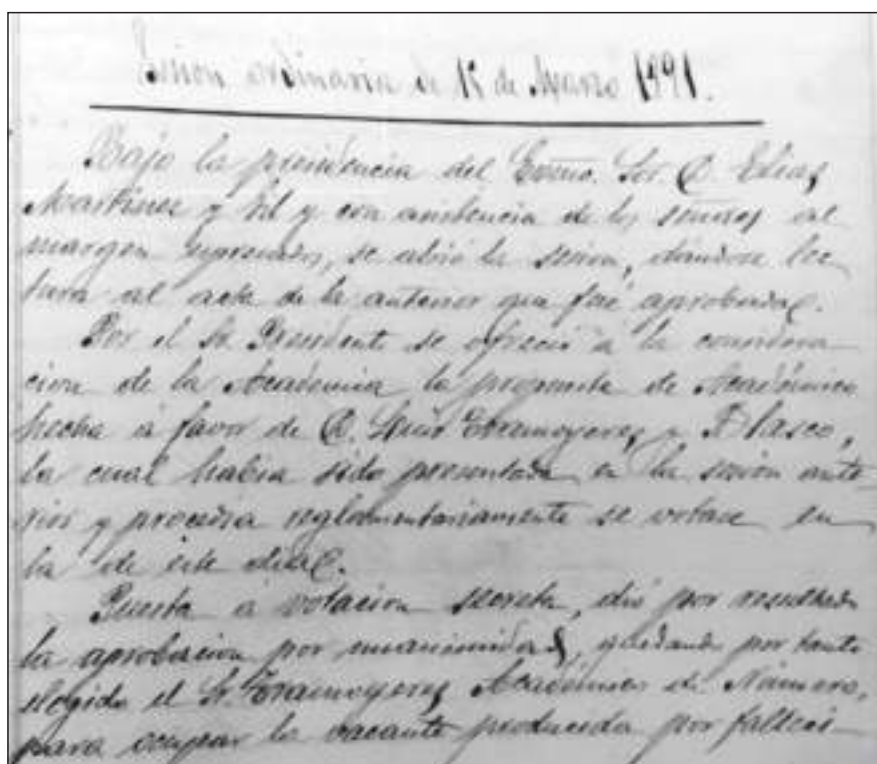 Sesion ordinaria de 15 de Marzo 1891.
Bajo la presidencia del Excmo. Sor. D. Elias
Martinez y Gil y con asistencia de los señores al
margen espresados, se abrió la sesion, dándose lec
tura al acta de la anterior que fué aprobada.
Por el Sr. Presidente se ofreció á la considera
cion de la Académia la propuesta de Académico
hecha á favor de D. Luis Tramoyeres y Blasco,
la cual habia sido presentada en la sesion ante
rior y procedia reglamentariamente se votase en
la de este dia.
Puesta á votacion secreta, dió por resultado
la aprobacion por unanimidad, quedando por tanto
elegido el Sr. Tramoyeres Académico de Número,
para ocupar la vacante producida por falleci